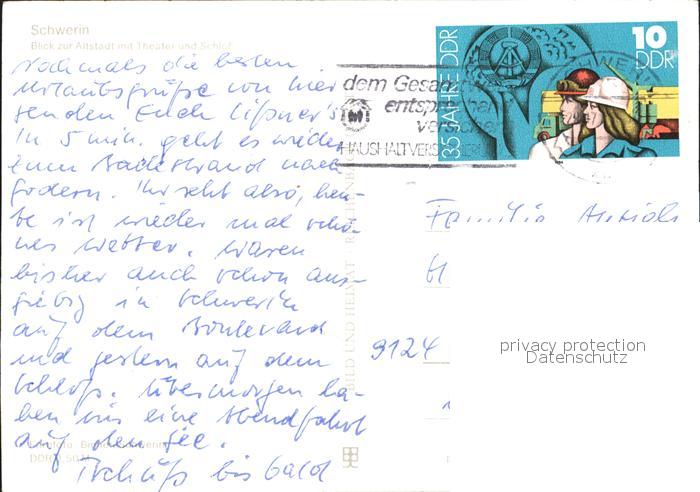 Schwerin
Blick zur Altstadt mit Theater und Schloß
Nochmals die besten
Urlaubsgrüße von hier
senden Euch Lißner's
In 5 min. geht es wieder
zum Badestrand nach
Ihr seht also, heu-
te ist wieder mal schö-
nes Wetter. Waren
bisher auch schon aus-
giebig in Schwerin
auf dem Boulevard
und gestern auf dem
Schloß. Übermorgen ha-
ben wir eine Abendfahrt
auf dem See.
Tschüß bis bald
35 JAHRE DDR
10
DDR
dem Gesam
entsp
versich
HAUSHALTVERS
Familie
9124
BILD UND HEIMAT
privacy protection
Datenschutz